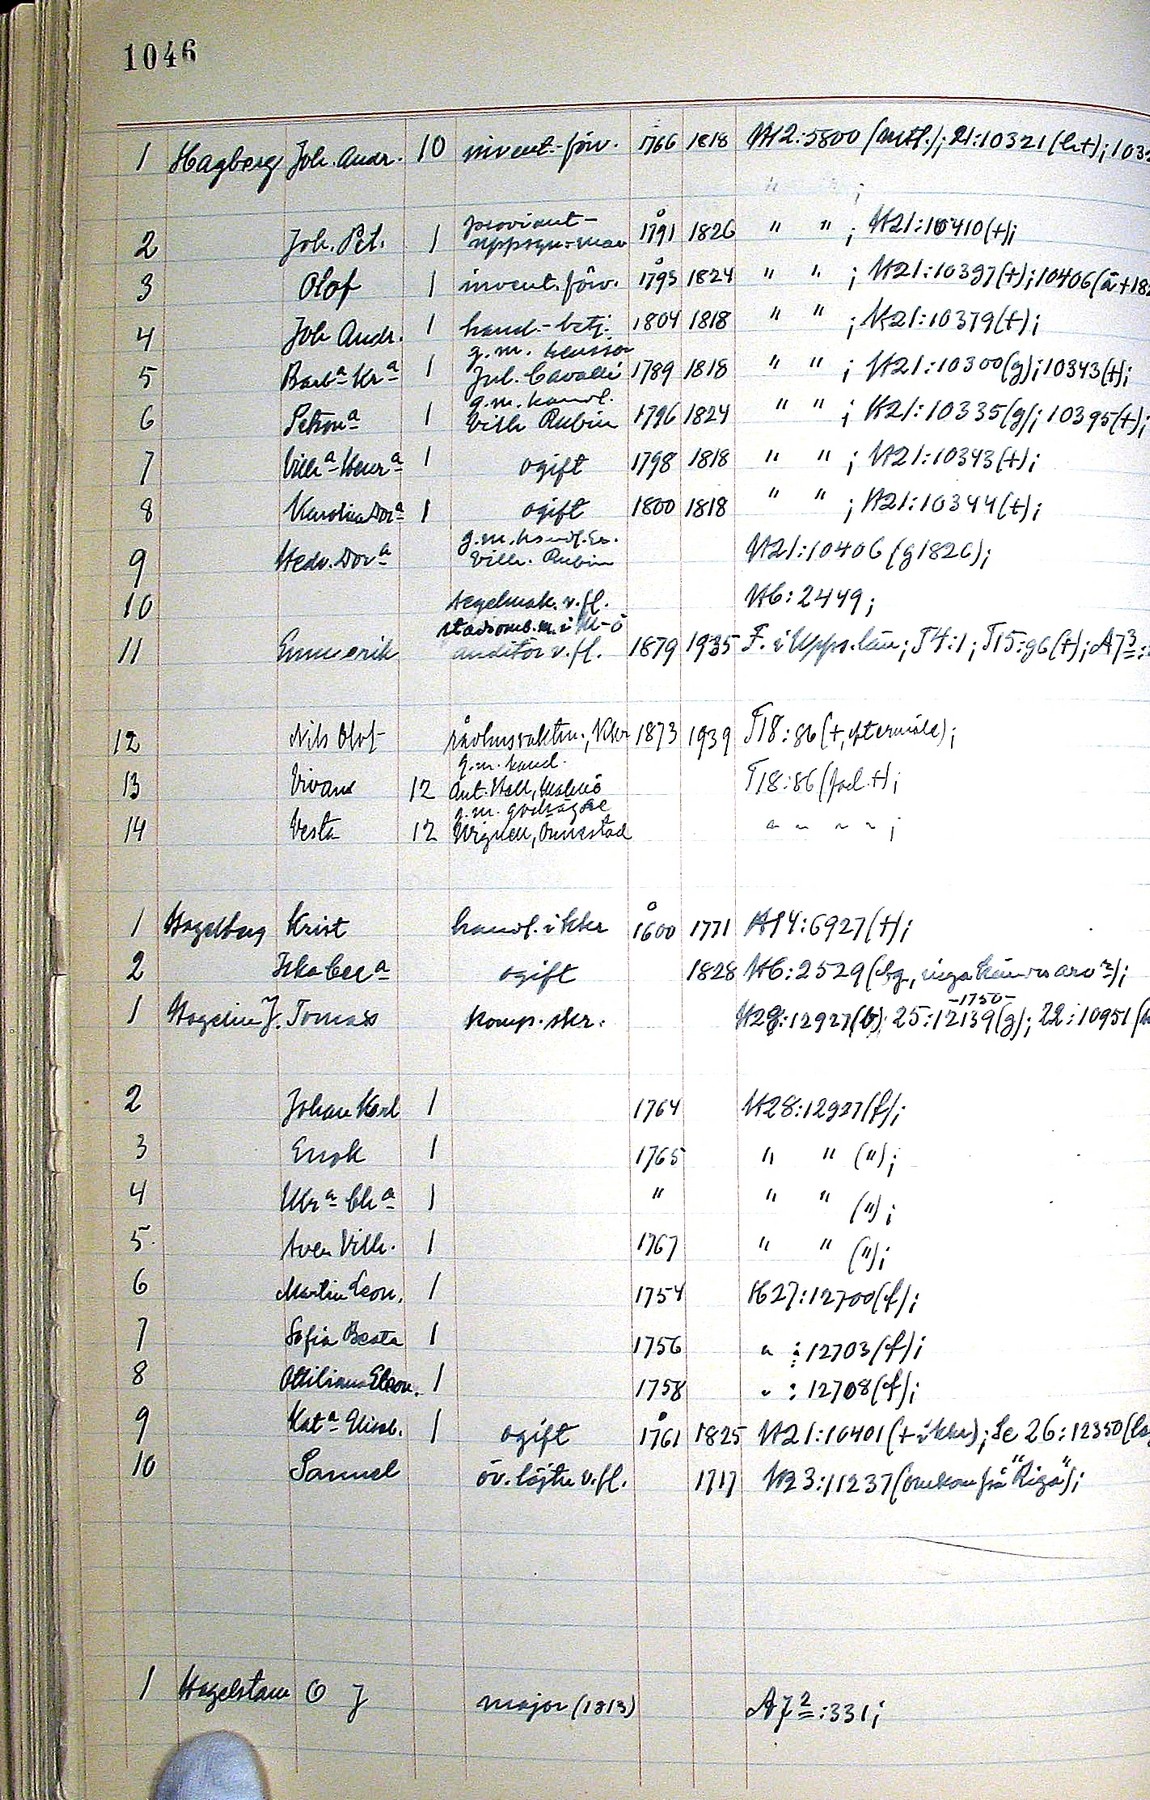 1046
1 Hagberg Joh. Andr. 10 invent.-förv. 1766 1818 K12:5800 (antf.); 21:10321 (h+); 103
2 Joh. Pet. 1 proviant-uppsyn-man 1791 1826 " " ; K21:10410(+);
3 Olof 1 invent. förv. 1795 1824 " " ; K21:10397(+); 10406(
4 Joh. Andr. 1 hand.-betj. 1804 1818 " " ; K21:10379(+);
5 Barbᵃ Krᵃ 1 g.m. Jul. Cavalli 1789 1818 " " ; K21:10300(g); 10343(+);
6 Petronᵃ 1 g.m. handl. Vilh Rubin 1796 1824 " " ; K21:10335(g); 10395(+);
7 Vilhᵃ Henrᵃ 1 ogift 1798 1818 " " ; K21:10343(+);
8 Karolina Dorᵃ 1 ogift 1800 1818 " " ; K21:10344(+);
9 Hedv. Dorᵃ g.m. handl. Vilh. Rubin K21:10406 (g1826);
10 segelmak. v. fl. K6:2449;
11 Emmerik auditör v. fl. 1879 1935 F. i Upps. län; T4:1; T15:96(+); A7³:
12 Nils Olof 1873 1939 T18:86(+, eftermäle);
13 Vivan 12 g.m. kand. Ant. Hall, Malmö T18:86 (fad. +);
14 Vesta 12 g.m. godsägare Wignell, Önnestad " " " " ;
1 Hagelberg Krist handl. i kkr 1600 1771 A14:6927(+);
2 Rebeccᵃ ogift 1828 K6:2529 (bg, inga kända arvᵃʳ);
1 Hagelin J. Tomas komp.skr. K28:12927(b); 25:12139(g); 22:10951
-1750-
2 Johan Karl 1 1764 K28:12927(f);
3 Enok 1 1765 " " (");
4 Ulrᵃ Chᵃ 1 " " " (");
5 Sven Vilh. 1 1767 " " (");
6 Martin Leon. 1 1754 K27:12700(f);
7 Sofia Beata 1 1756 " :12703(f);
8 Ottiliana 1 1758 " :12708(f);
9 Katᵃ Elisab. 1 ogift 1761 1825 K21:10401 (+ i kkr); Se 26:12350
10 Samuel öv. löjtn v. fl. 1717 K23:11237 (omkom frå "Riga");
1 Hagelstam O J major (1813) A7²:331;